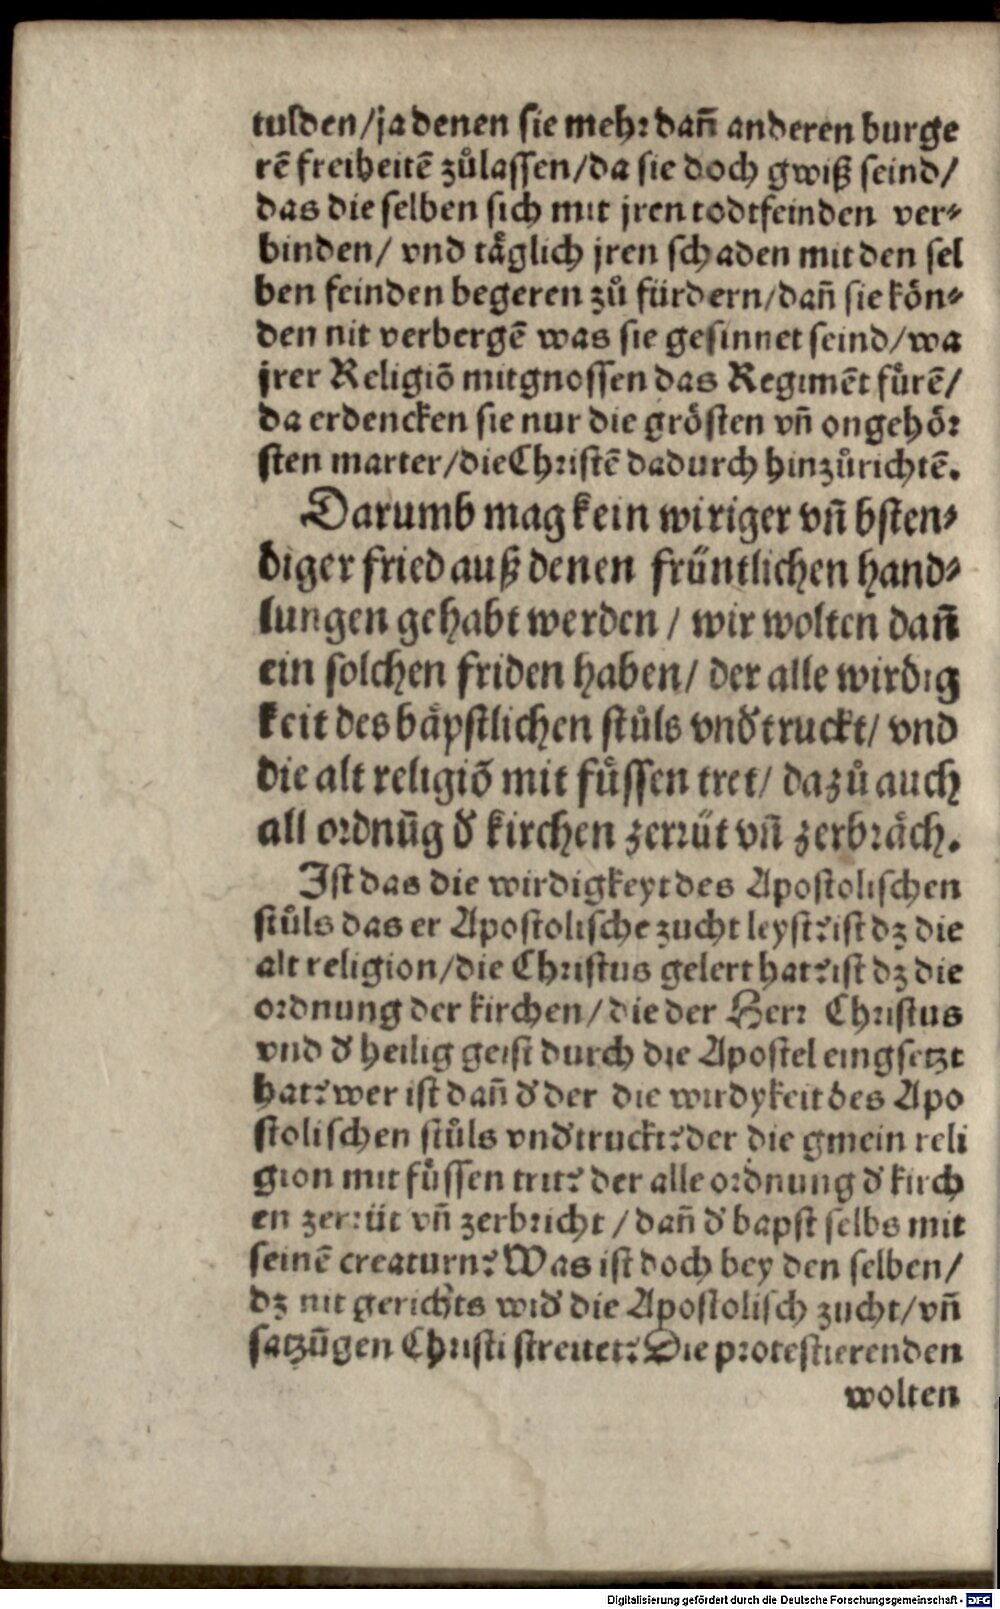 tulden/ja denen sie mehr dañ anderen burge
rē freiheitē zůlassen/da sie doch gwiß seind/
das die selben sich mit jren todtfeinden ver⸗
binden/ vnd täglich jren schaden mit den sel
ben feinden begeren zů fürdern/dañ sie kön⸗
den nit verbergē was sie gesinnet seind/wa
jrer Religiō mitgnossen das Regimēt fůrē/
da erdencken sie nur die grösten vñ ongehör
sten marter/die Christē dadurch hinzůrichtē.
Darumb mag kein wiriger vñ bsten⸗
diger fried auß denen früntlichen hand⸗
lungen gehabt werden / wir wolten dañ
ein solchen friden haben/ der alle wirdig
keit des bäpstlichen stůls vnd̓truckt/ vnd
die alt religiō mit fůssen tret/ dazů auch
all ordnūg d̓ kirchen zerrüt vñ zerbräch.
Ist das die wirdigkeyt des Apostolischen
stůls das er Apostolische zucht leyst? ist dz die
alt religion/die Christus gelert hat? ist dz die
ordnung der kirchen/die der Herr Christus
vnd d̓ heilig geist durch die Apostel eingsetzt
hat? wer ist dañ d̓ der die wirdykeit des Apo
stolischen stůls vnd̓truckt? der die gmein reli
gion mit fůssen trit? der alle ordnung d̓ kirch
en zerrüt vñ zerbricht / dañ d̓ bapst selbs mit
seinē creaturn? Was ist doch bey den selben/
dz nit gerichts wid̓ die Apostolisch zucht/vñ
satzūgen Christi streitet? Die protestierenden
wolten
Digitalisierung gefördert durch die Deutsche Forschungsgemeinschaft - DFG